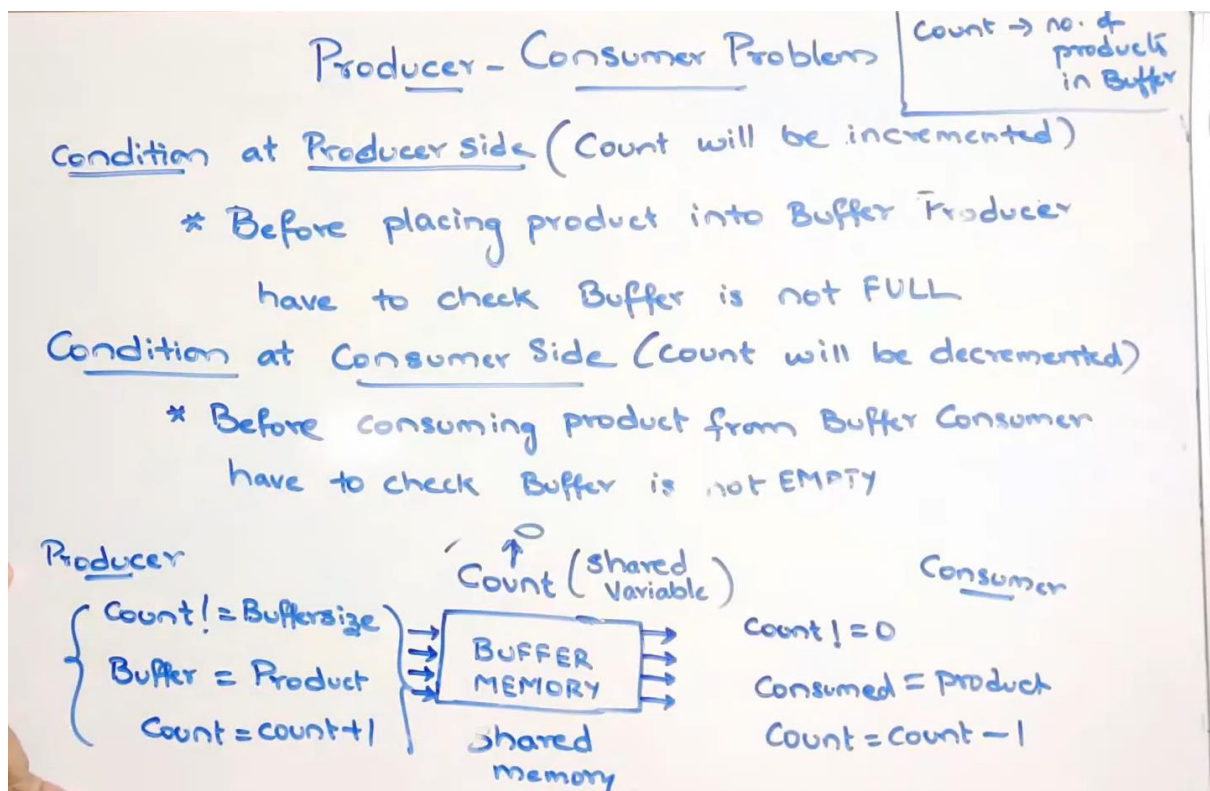 Producer - Consumer Problem
Count → no. of
products
in Buffer
Condition at Producer side (Count will be incremented)
* Before placing product into Buffer Producer
have to check Buffer is not FULL
Condition at Consumer Side (Count will be decremented)
* Before consuming product from Buffer Consumer
have to check Buffer is not EMPTY
Producer
Count != Buffersize
Buffer = Product
Count = count+1
0
Count (shared
variable)
BUFFER
MEMORY
shared
memory
Consumer
Count != 0
Consumed = product
Count = Count - 1